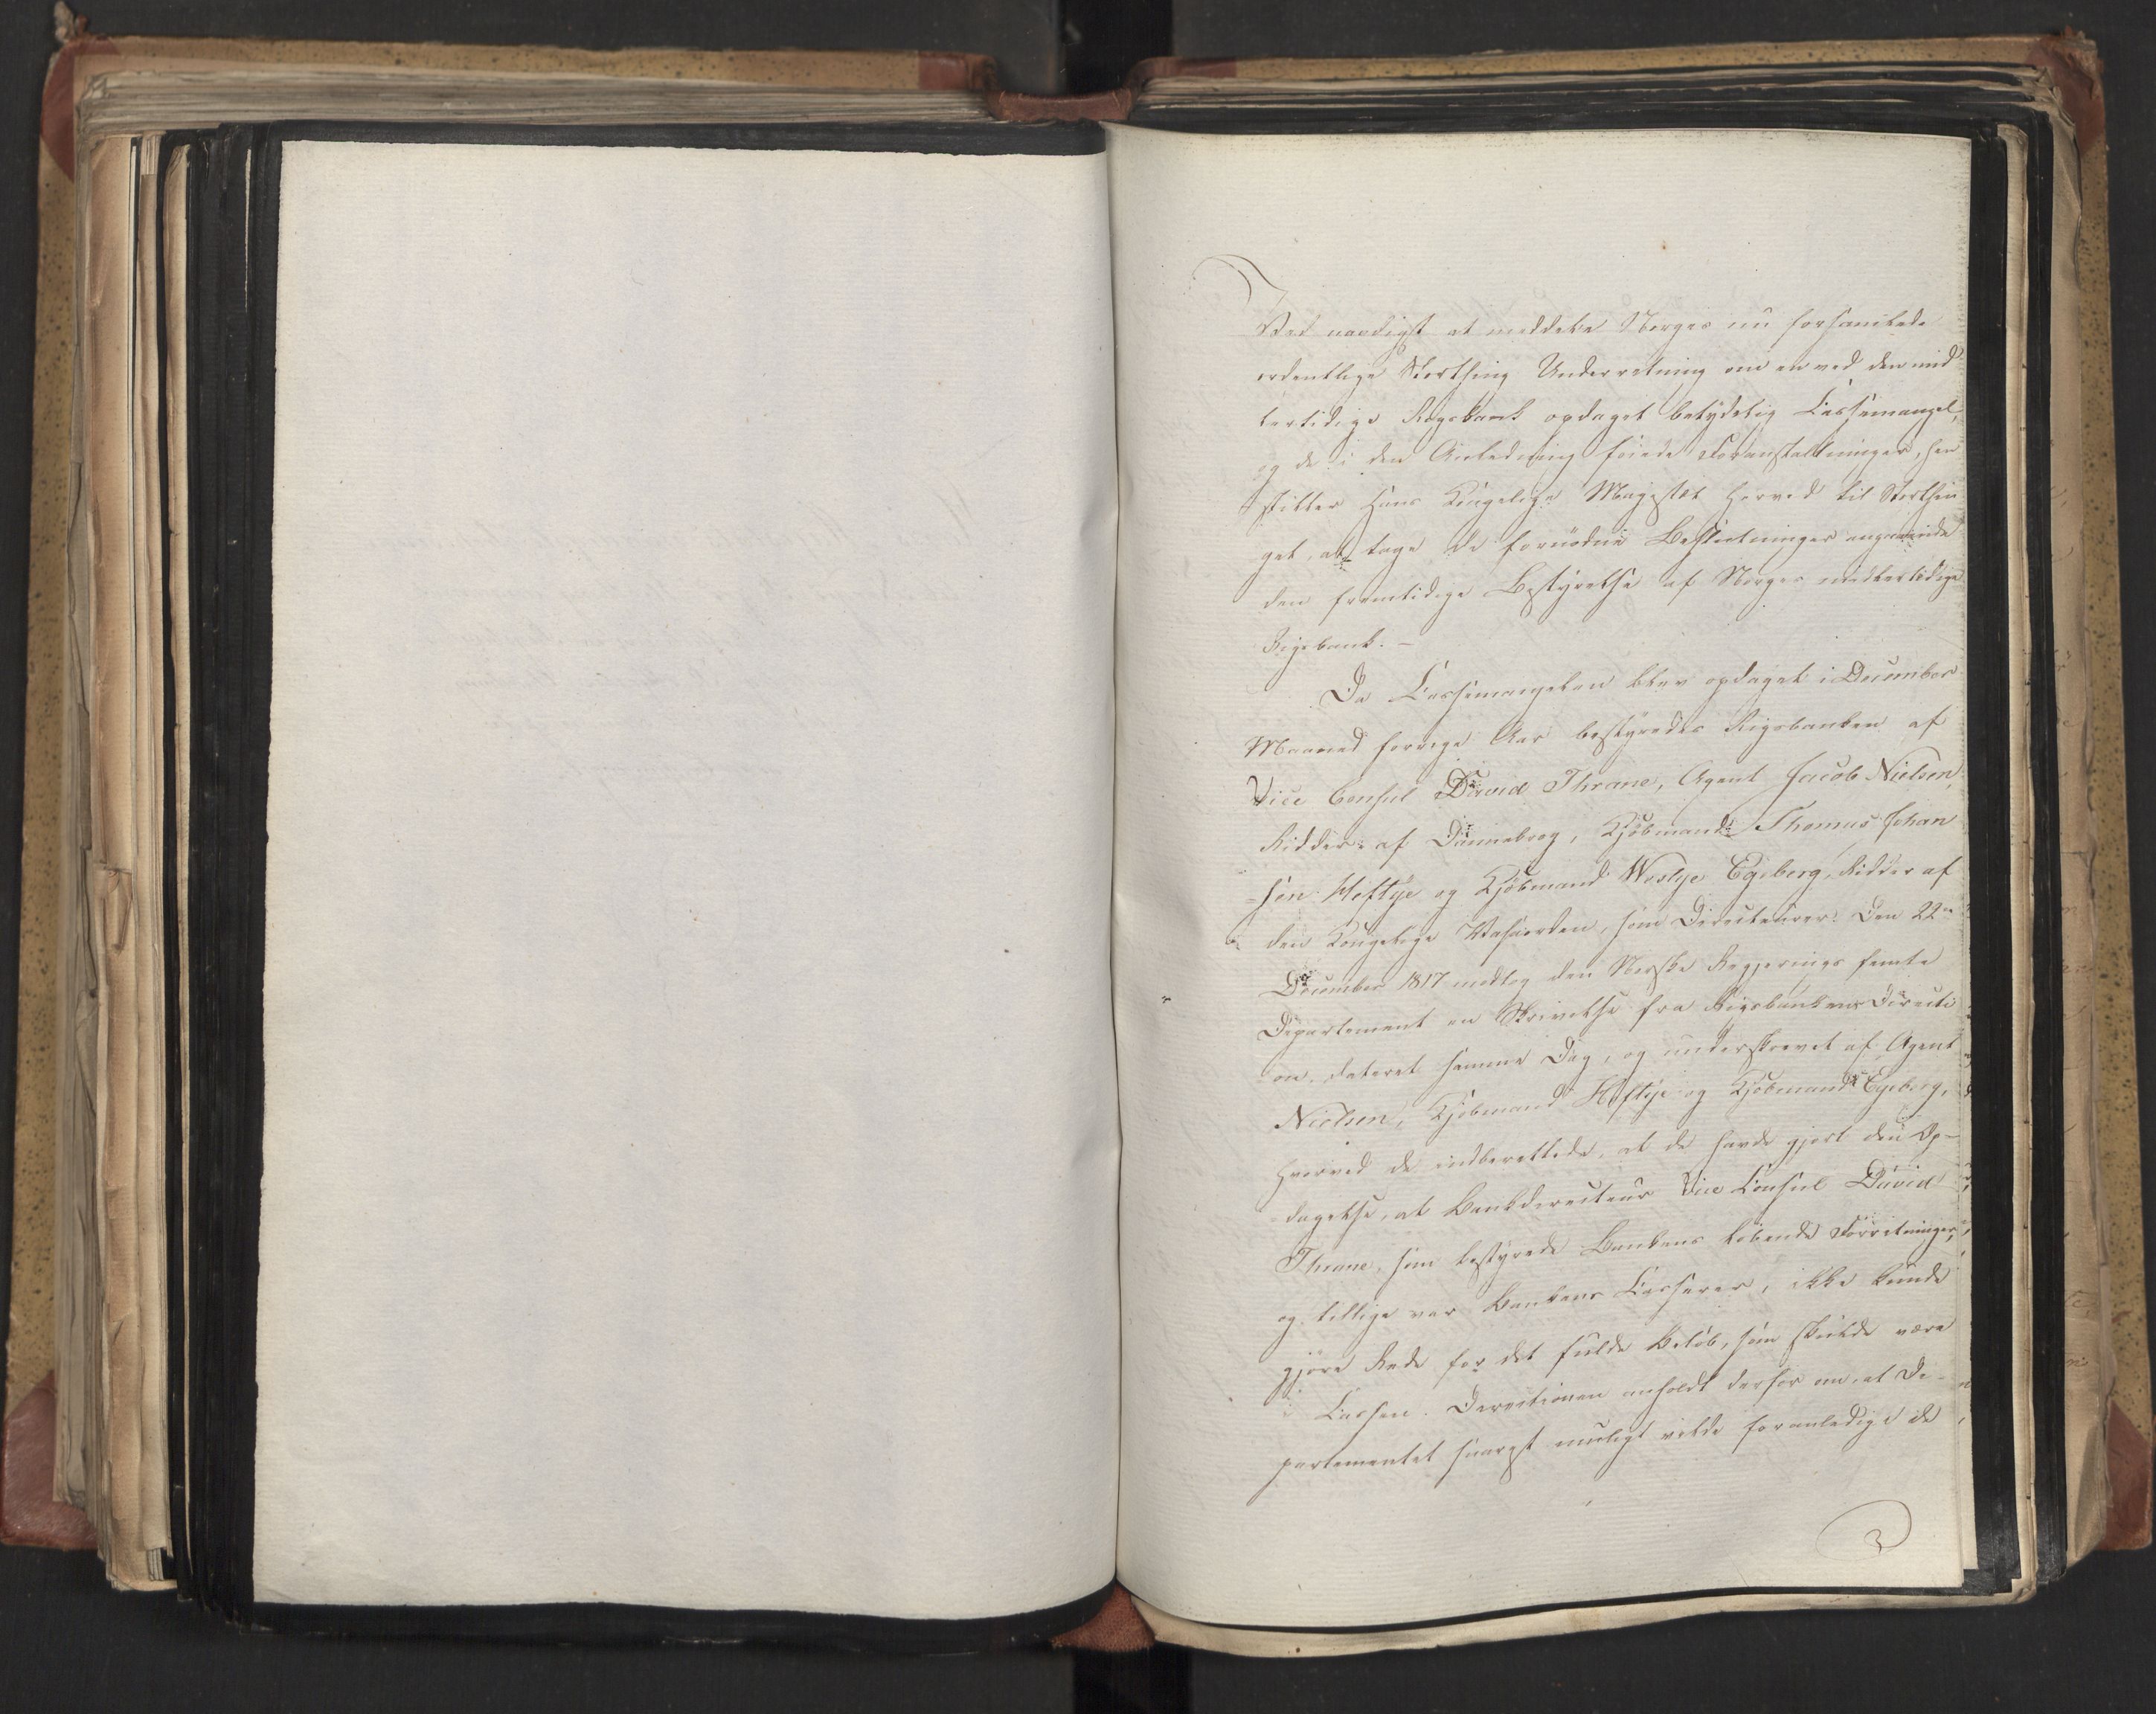 Ved naadigst at meddele Norges nu forsamlede
ordentlige Storthing Underretning om en ved den mid
lertidige Rigsbank opdaget betydelig Cassemangel,
og de i den Anledning föiede Foranstaltninger, hen
stiller Hans Kongelige Majestæt herved til Storthin
get, at tage de fornödne Beslutninger angaaende
den fremtidige Bestyrelse af Norges midlertidige
Rigsbank. –
Da Cassemangelen blev opdaget i December
Maaned forrige Aar bestyredes Rigsbanken af
Vice Consul David Thrane, Agent Jacob Nielsen,
Ridder af Dannebrog, Kjöbmand Thomas Johan
=sen Heftye og Kjöbmand Westye Egeberg, Ridder af
den Kongelige Vasaorden, som Directeurer. Den 22de
December 1817 modtog den Norske Regjerings femte
Departement en Skrivelse fra Rigsbankens Directi
on, dateret samme Dag, og underskrevet af Agent
Nielsen, Kjöbmand Heftye og Kjöbmand Egeberg,
hvorved de indberettede, at de havde gjort den Op=
=dagelse, at Bankdirecteur Vice Consul David
Thrane, som bestyrede Bankens löbende Forretninger,
og tillige var Bankens Casserer, ikke kunde
gjöre Rede for det fulde Belöb, som skulde være
i Cassen. Directionen anholdt derfor om, at De=
partementet snarest muligt vilde foranledige de